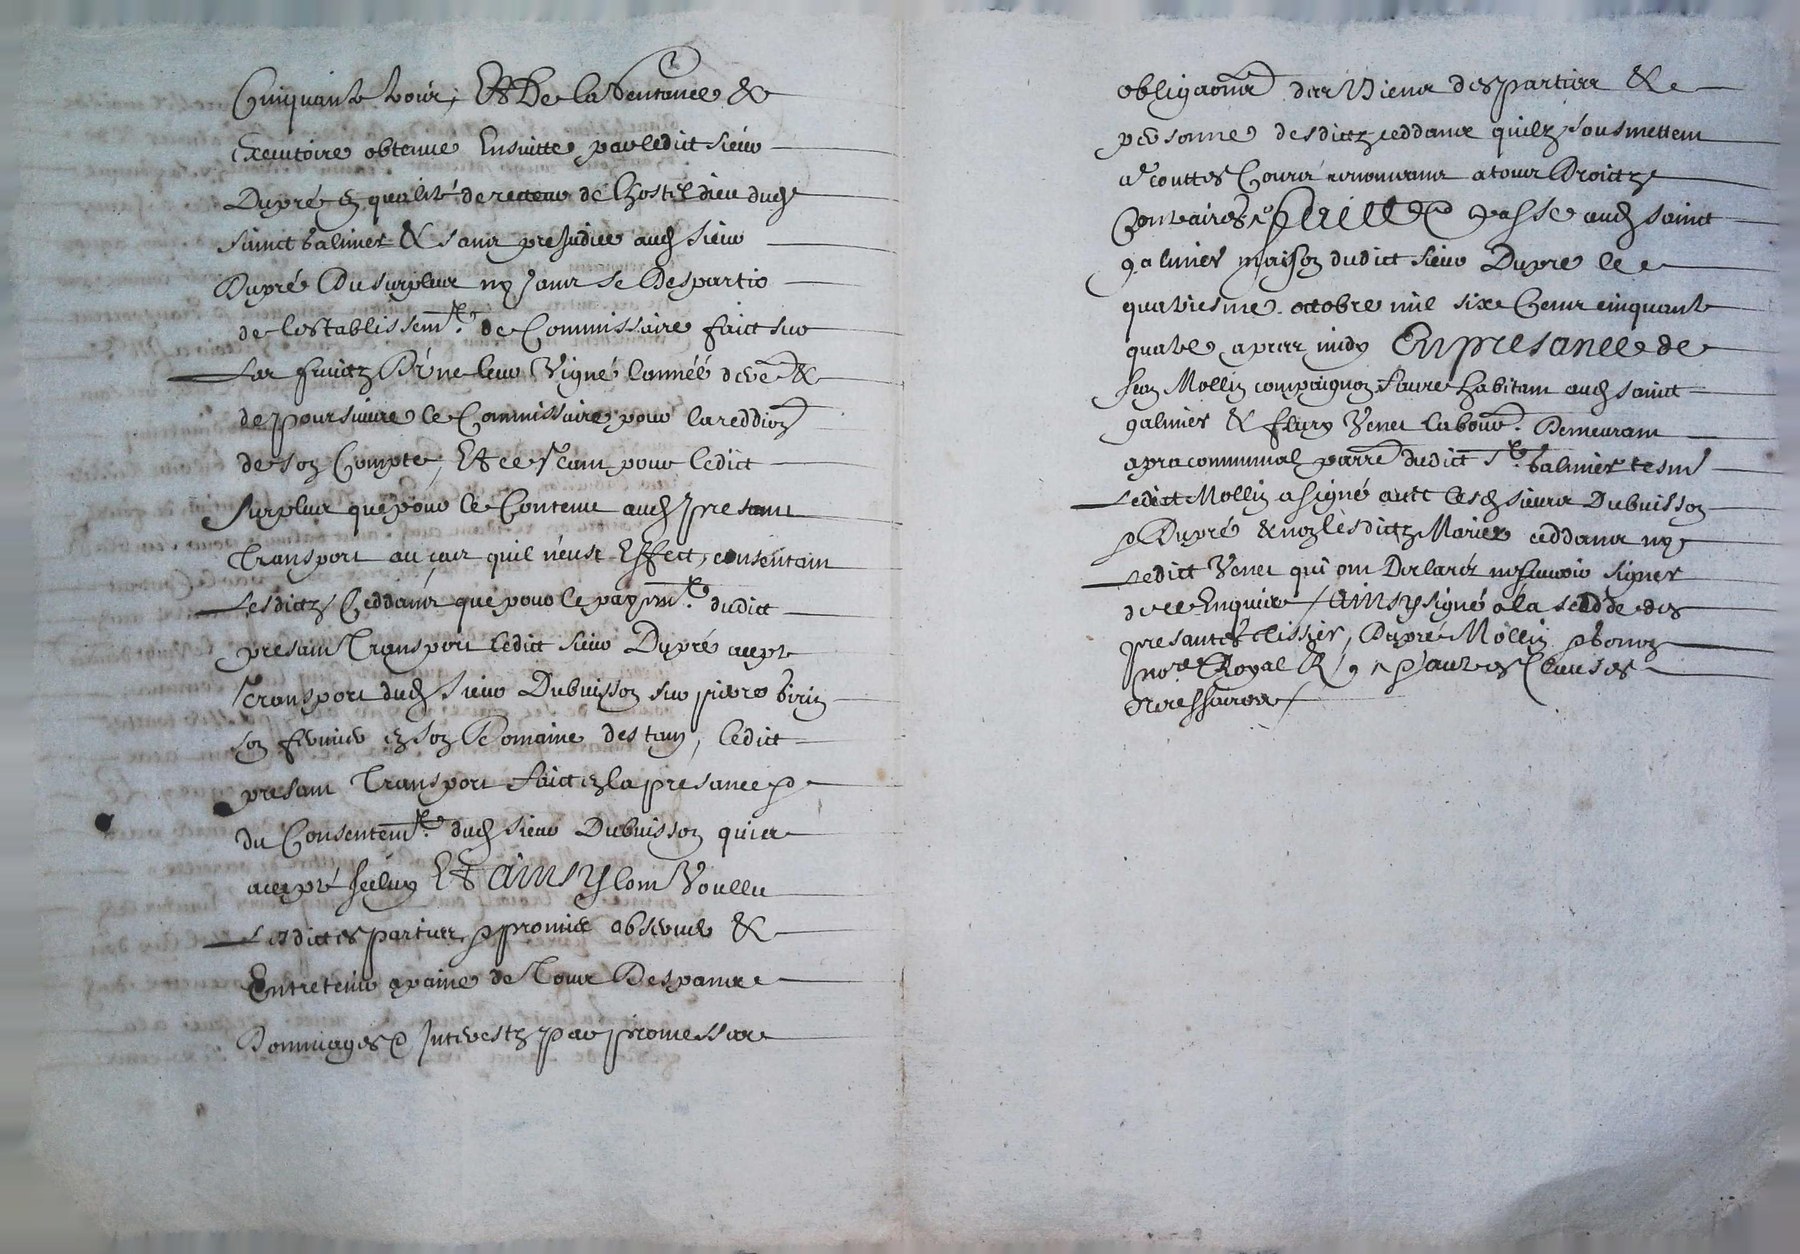 Cinquante trois, Et De la Sentence &
Executoire obtenue Ensuitte par ledict sieur
Dupré en qualité de recteur de l'hostel dieu dud
sainct Galmier & sans prejudice aud sieur
Dupré Du surplus ny sans se Despartir
de lestablissem.t de Commissaire faict sur
Les fruictz D'une leur Vigne lannéé &
de poursuivre le Commissaire pour la reddion
de son Compte, Et ce tant pour ledict
surplus que pour le Contenu aud presant
Transport au cas quil n'eust Effect, consentant
Lesdictz Ceddans que pour le paym.t dudict
presant Transport ledict sieur Dupré accepte
Transport dud sieur Dubuisson sur pierre
son fermier en son Domaine destain, Ledict
presant Transport faict en la presance &
du Consentem.t dud sieur Dubuisson qui la
accepté Et ainsy lont Voullu
Lesdictes parties promis observer &
Entretenir a paine de Tous Despans
Dommages & Interestz par promesses
obligaons des Biens desparties &
personne desdictz ceddans quilz sousmettent
a touttes Cours renonceans a tous Droictz
Contraires faict & passe aud sainct
galmier maison dudict sieur Dupre le
quatriesme octobre mil six Cens cinquante
quatre apres midy En presance de
Jean Mollin compaignon habitant aud sainct
galmier & fleury Venet labour. Demeurant
parre dudict S.t Galmier tesm
Ledict Mollin a signé avec lesd sieurs Dubuisson
& Dupré & non lesdictz Mariez ceddans ny
Ledict Venet qui ont Declarés ne scavoir signer
de ce Enquis / ainsy signé a la cedde des
presantes Dupré Mollin
no.re Royal & d'autres Clauses
necessaires /